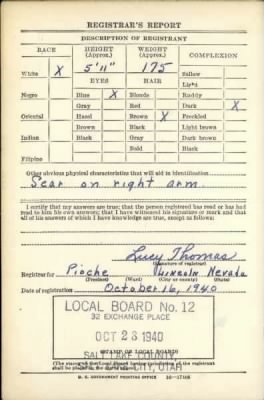 REGISTRAR'S REPORT
DESCRIPTION OF REGISTRANT
RACE HEIGHT (Approx.) WEIGHT (Approx.) COMPLEXION
White X 5' 11" 175 Sallow
EYES HAIR Light
Negro Blue X Blonde Ruddy
Gray Red Dark X
Oriental Hazel Brown X Freckled
Brown Black Light brown
Indian Black Gray Dark brown
Bald Black
Filipino
Other obvious physical characteristics that will aid in identification
Scar on right arm.
I certify that my answers are true; that the person registered has read or has had read to him his own answers; that I have witnessed his signature or mark and that all of his answers of which I have knowledge are true, except as follows:
Lucy Thomas
(Signature of registrar)
Registrar for Pioche Lincoln Nevada
(Precinct) (Ward) (City or county) (State)
Date of registration October 16, 1940
LOCAL BOARD No. 12
32 EXCHANGE PLACE
OCT 23 1940
SALT LAKE COUNTY,
SALT LAKE CITY, UTAH
U. S. GOVERNMENT PRINTING OFFICE